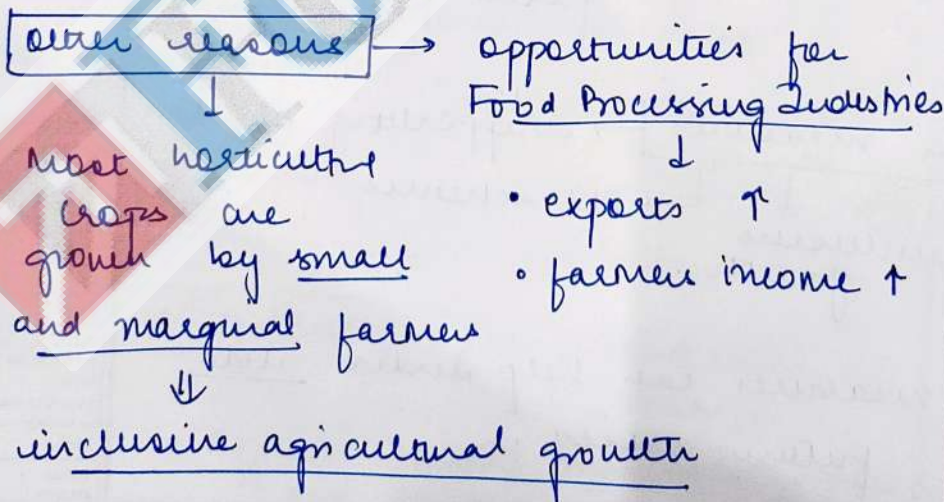 other reasons → opportunities for
Food Processing Industries
↓
• exports ↑
• farmers income ↑
↓
most horticulture
crops are
grown by small
and marginal farmers
⇓
inclusive agricultural growth